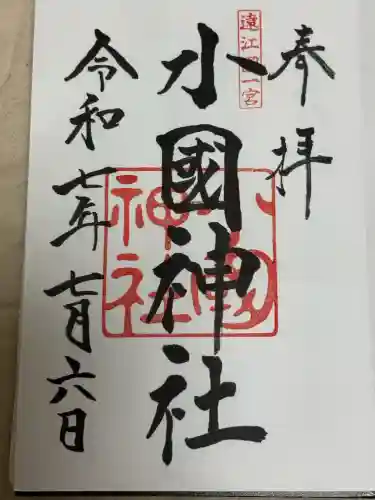 奉拝
遠江国一宮
小國神社
小國
神社
令和七年七月六日